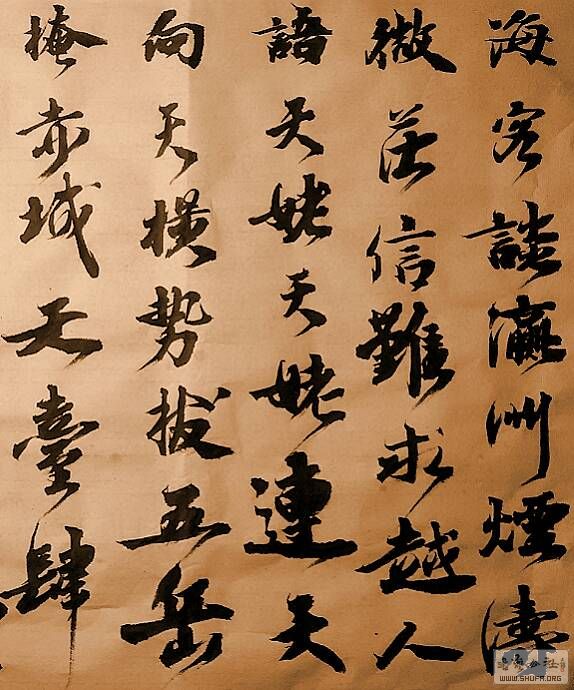 海客談瀛州煙濤
微茫信難求越人
語天姥天姥連天
向天橫勢拔五岳
掩赤城天臺肆
WWW.SHUFA.ORG